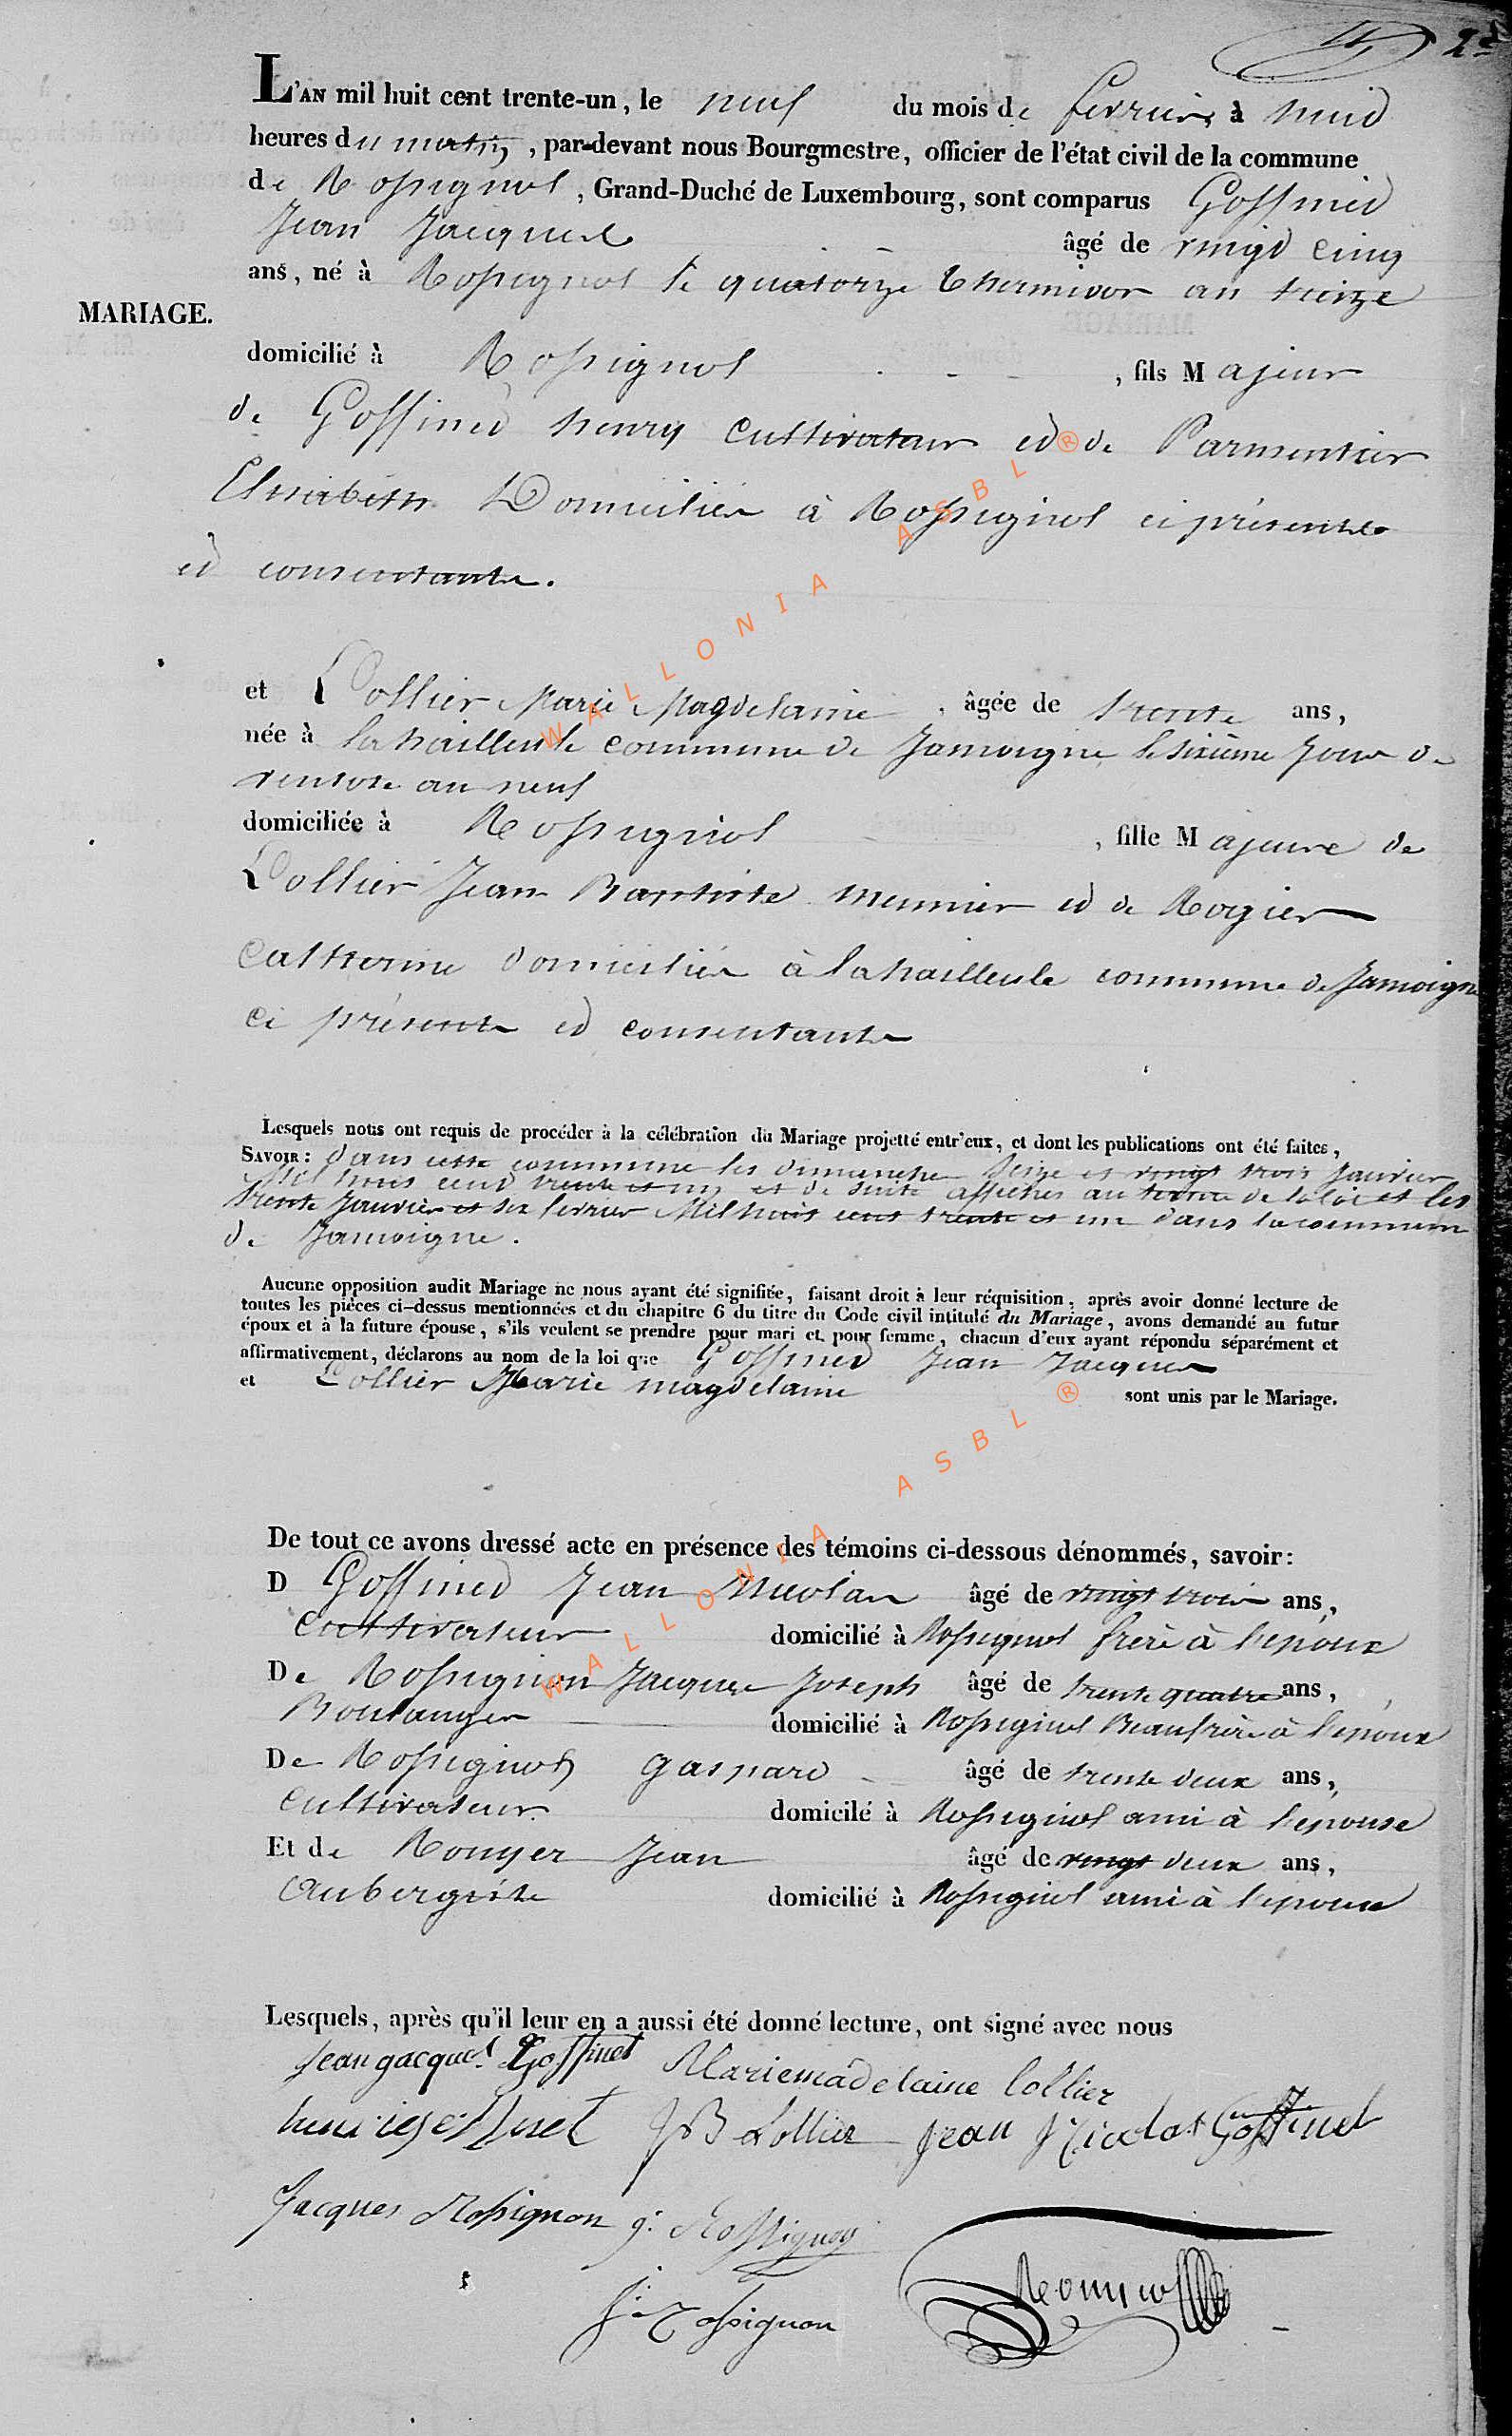 4 2e
L'AN mil huit cent trente-un, le neuf du mois de fevrier, à huid
heures du matin, par-devant nous Bourgmestre, officier de l'état civil de la commune
de Rossignol, Grand-Duché de Luxembourg, sont comparus Goffined
Jean Jacques âgé de vingd cinq
ans, né à Rossignol le quatorze thermidor an treize
MARIAGE.
domicilié à Rossignol, fils Majeur
de Goffined henry Cultivateur ed de Parmentier
Elisabeth Domiciliés à Rossignol ci présents
ed consentants.
et Lollier Marie Magdelaine, âgée de trente ans,
née à lahailleule commune de Jamoigne le sixième jour de
ventose an neuf
domiciliée à Rossignol, fille Majeure de
Lollier Jean Baptiste meunier ed de Rogier
Catherine domiciliés à lahailleule commune de Jamoigne
ci présents ed consentants
Lesquels nous ont requis de procéder à la célébration du Mariage projetté entr'eux, et dont les publications ont été faites,
SAVOIR: dans cette commune les dimanches seize et vingt trois janvier
Mil huit cent trente et un et de suite affichés au terme de la loi et les
trente Janvier et six fevrier Mil huit cent trente et un dans la commune
de Jamoigne.
Aucune opposition audit Mariage ne nous ayant été signifiée, faisant droit à leur réquisition, après avoir donné lecture de
toutes les pièces ci-dessus mentionnées et du chapitre 6 du titre du Code civil intitulé du Mariage, avons demandé au futur
époux et à la future épouse, s'ils veulent se prendre pour mari et pour femme, chacun d'eux ayant répondu séparément et
affirmativement, déclarons au nom de la loi que Goffined Jean Jacques
et Lollier Marie magdelaine sont unis par le Mariage.
De tout ce avons dressé acte en présence des témoins ci-dessous dénommés, savoir:
D Goffined Jean Nicolas âgé de vingt trois ans,
Cultivateur domicilié à Rossignol frère à l'epoux
De Rossignon Jacques Joseph âgé de trente quatre ans,
Boulanger domicilié à Rossignol Beaufrère à l'epoux
De Rossignon gaspard âgé de trente deux ans,
Cultivateur domicilé à Rossignol ami à l'epouse
Et de Rouyer Jean âgé de vingt deux ans,
Aubergiste domicilié à Rossignol ami à l'epouse
Lesquels, après qu'il leur en a aussi été donné lecture, ont signé avec nous
jean jacque Goffinet Mariemadelaine lollier
henri goffinet JB Lollier jean Nicolas Goffinet
Jacques Rossignon g. Rossignon
J. Rossignon
WALLONIA ASBL ®
WALLONIA ASBL ®